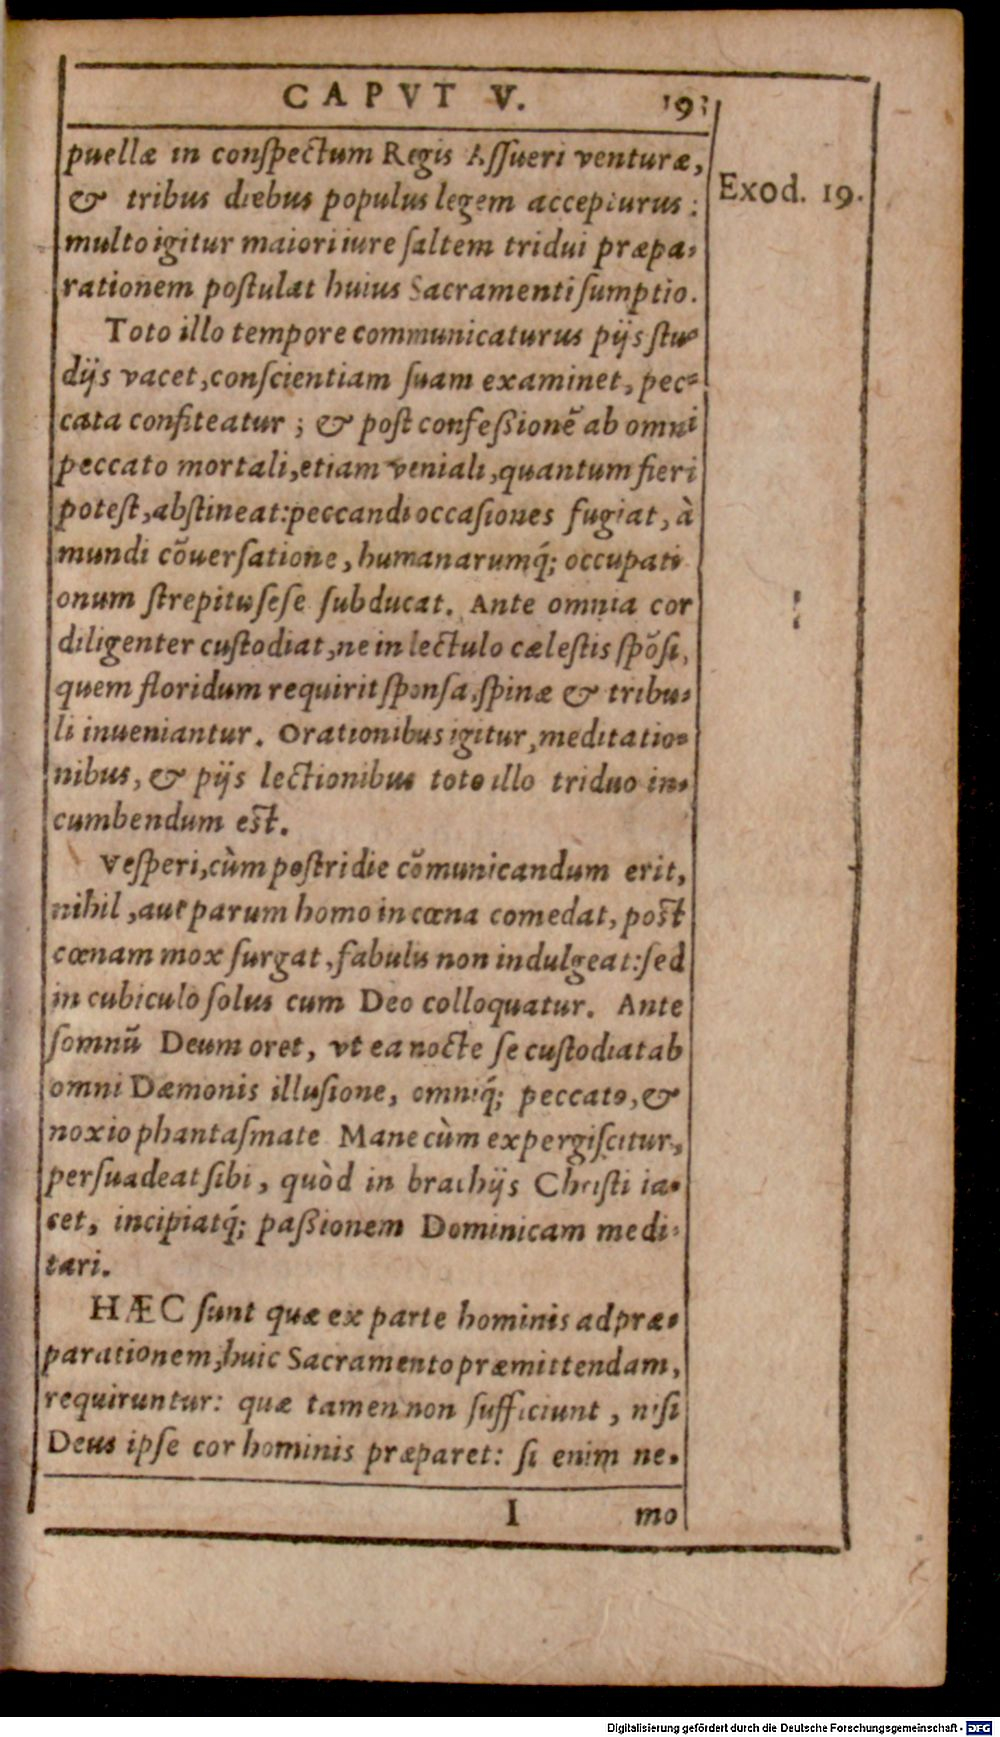 CAPVT V. 193
puellæ in conſpectum Regis Aſſueri venturæ,
& tribus diebus populus legem accepturus:
Exod. 19.
multo igitur maiori iure ſaltem tridui præpa-
rationem poſtulat huius Sacramenti ſumptio.
Toto illo tempore communicaturus pijs ſtu-
dijs vacet, conſcientiam ſuam examinet, pec-
cata confiteatur; & poſt confeßionẽ ab omni
peccato mortali, etiam veniali, quantum fieri
poteſt, abſtineat: peccandi occaſiones fugiat, à
mundi cõuerſatione, humanarumq́; occupati
onum ſtrepitu ſeſe ſubducat. Ante omnia cor
diligenter cuſtodiat, ne in lectulo cæleſtis ſpõſi,
quem floridum requirit ſponſa, ſpinæ & tribu-
li inueniantur. Orationibus igitur, meditatio-
nibus, & pijs lectionibus toto illo triduo in-
cumbendum eſt.
Veſperi, cùm poſtridie cõmunicandum erit,
nihil, aut parum homo in cœna comedat, poſt
cœnam mox ſurgat, fabulis non indulgeat: ſed
in cubiculo ſolus cum Deo colloquatur. Ante
ſomnũ Deum oret, vt ea nocte ſe cuſtodiat ab
omni Dæmonis illuſione, omniq́; peccato, &
noxio phantaſmate Mane cùm expergiſcitur,
perſuadeat ſibi, quòd in brachijs Chriſti ia-
cet, incipiatq́; paßionem Dominicam medi-
tari.
HÆC ſunt quæ ex parte hominis ad præ-
parationem, huic Sacramento præmittendam,
requiruntur: quæ tamen non ſufficiunt, niſi
Deus ipſe cor hominis præparet: ſi enim ne-
I mo
Digitalisierung gefördert durch die Deutsche Forschungsgemeinschaft - DFG